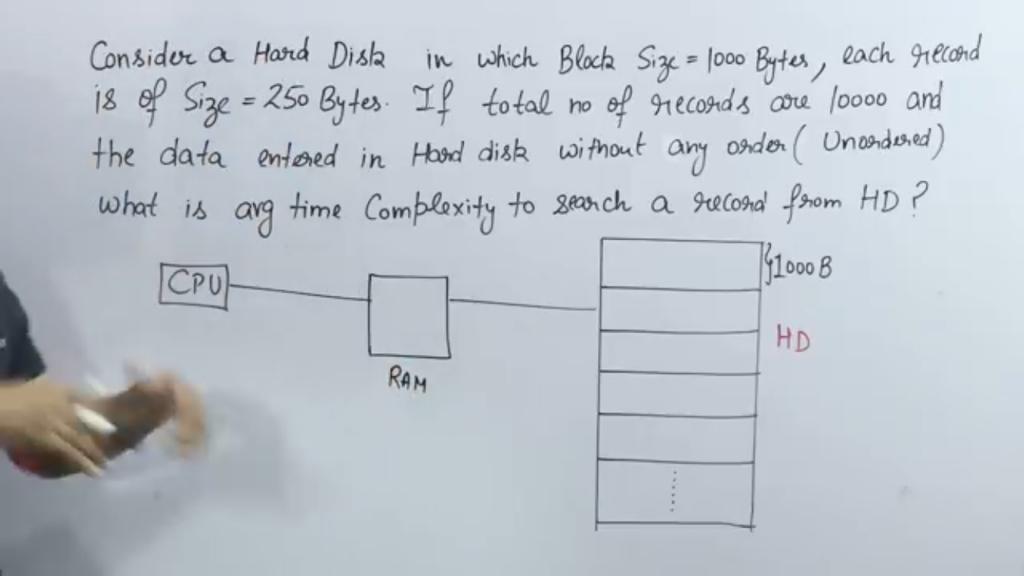 Consider a Hard Disk in which Block Size = 1000 Bytes, each record
is of Size = 250 Bytes. If total no of records are 10000 and
the data entered in Hard disk without any order ( Unordered )
what is avg time Complexity to search a record from HD ?
CPU
RAM
}1000 B
HD